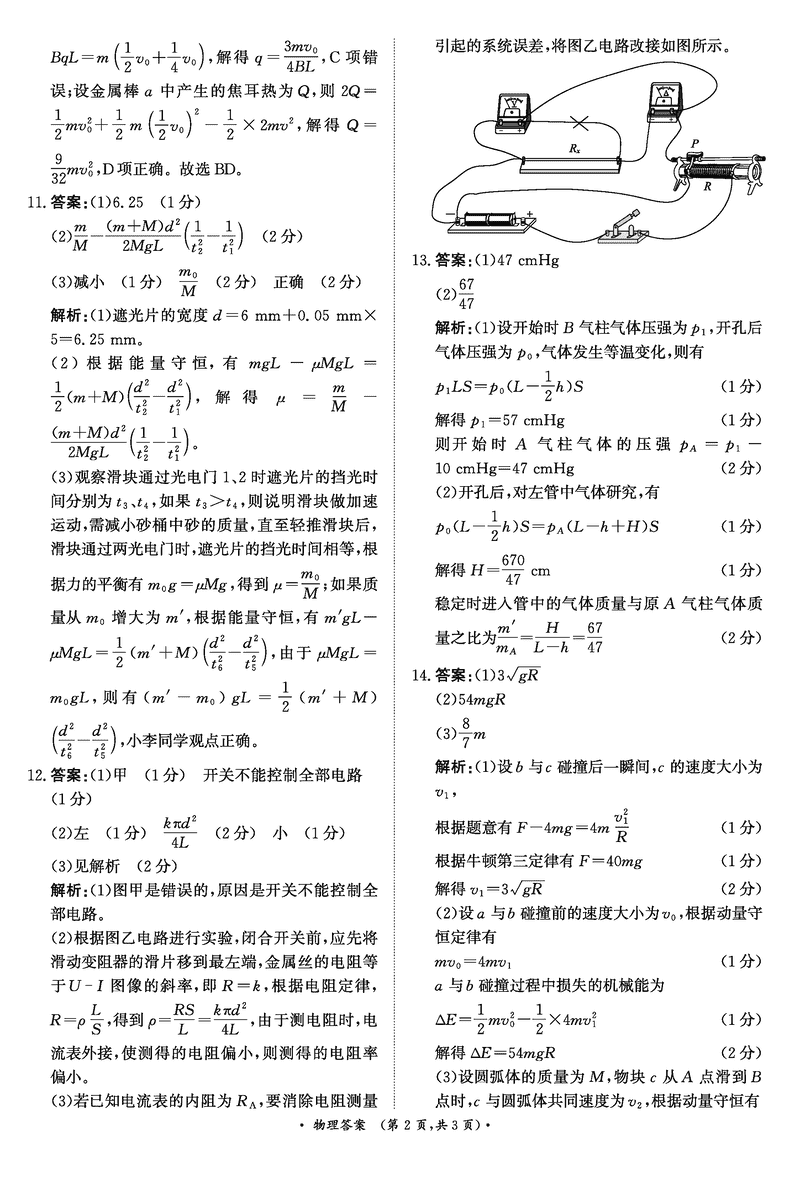 BqL=m(1/2 v₀+1/4 v₀),解得 q=3mv₀/4BL,C 项错
误;设金属棒 a 中产生的焦耳热为 Q,则 2Q=
1/2 mv₀²+1/2 m(1/2 v₀)²-1/2×2mv²,解得 Q=
9/32 mv₀²,D项正确。故选 BD。
11.答案:(1)6.25 (1 分)
(2)m/M-(m+M)d²/2MgL(1/t₂²-1/t₁²) (2 分)
(3)减小 (1 分) m₀/M (2 分) 正确 (2 分)
解析:(1)遮光片的宽度 d=6 mm+0.05 mm×
5=6.25 mm。
(2)根据能量守恒,有 mgL-μMgL=
1/2(m+M)(d²/t₂²-d²/t₁²),解得 μ=m/M-
(m+M)d²/2MgL(1/t₂²-1/t₁²)。
(3)观察滑块通过光电门 1、2 时遮光片的挡光时
间分别为 t₃、t₄,如果 t₃>t₄,则说明滑块做加速
运动,需减小砂桶中砂的质量,直至轻推滑块后,
滑块通过两光电门时,遮光片的挡光时间相等,根
据力的平衡有 m₀g=μMg,得到 μ=m₀/M;如果质
量从 m₀ 增大为 m′,根据能量守恒,有 m′gL-
μMgL=1/2(m′+M)(d²/t₆²-d²/t₅²),由于 μMgL=
m₀gL,则有(m′-m₀)gL=1/2(m′+M)
(d²/t₆²-d²/t₅²),小李同学观点正确。
12.答案:(1)甲 (1 分) 开关不能控制全部电路
(1 分)
(2)左 (1 分) kπd²/4L (2 分) 小 (1 分)
(3)见解析 (2 分)
解析:(1)图甲是错误的,原因是开关不能控制全
部电路。
(2)根据图乙电路进行实验,闭合开关前,应先将
滑动变阻器的滑片移到最左端,金属丝的电阻等
于U-I 图像的斜率,即 R=k,根据电阻定律,
R=ρL/S,得到 ρ=RS/L=kπd²/4L,由于测电阻时,电
流表外接,使测得的电阻偏小,则测得的电阻率
偏小。
(3)若已知电流表的内阻为 R_A,要消除电阻测量
引起的系统误差,将图乙电路改接如图所示。
V
A
Rₓ
P
R
- +
13.答案:(1)47 cmHg
(2)67/47
解析:(1)设开始时 B 气柱气体压强为 p₁,开孔后
气体压强为 p₀,气体发生等温变化,则有
p₁LS=p₀(L-1/2 h)S (1 分)
解得 p₁=57 cmHg (1 分)
则开始时 A 气柱气体的压强 p_A=p₁-
10 cmHg=47 cmHg (2 分)
(2)开孔后,对左管中气体研究,有
p₀(L-1/2 h)S=p_A(L-h+H)S (1 分)
解得 H=670/47 cm (1 分)
稳定时进入管中的气体质量与原 A 气柱气体质
量之比为 m′/m_A=H/(L-h)=67/47 (2 分)
14.答案:(1)3√gR
(2)54mgR
(3)8/7 m
解析:(1)设 b 与 c 碰撞后一瞬间,c 的速度大小为
v₁,
根据题意有 F-4mg=4m v₁²/R (1 分)
根据牛顿第三定律有 F=40mg (1 分)
解得 v₁=3√gR (2 分)
(2)设 a 与 b 碰撞前的速度大小为 v₀,根据动量守
恒定律有
mv₀=4mv₁ (1 分)
a 与 b 碰撞过程中损失的机械能为
ΔE=1/2 mv₀²-1/2×4mv₁² (1 分)
解得 ΔE=54mgR (2 分)
(3)设圆弧体的质量为 M,物块 c 从 A 点滑到 B
点时,c 与圆弧体共同速度为 v₂,根据动量守恒有
· 物理答案 (第 2 页,共 3 页) ·